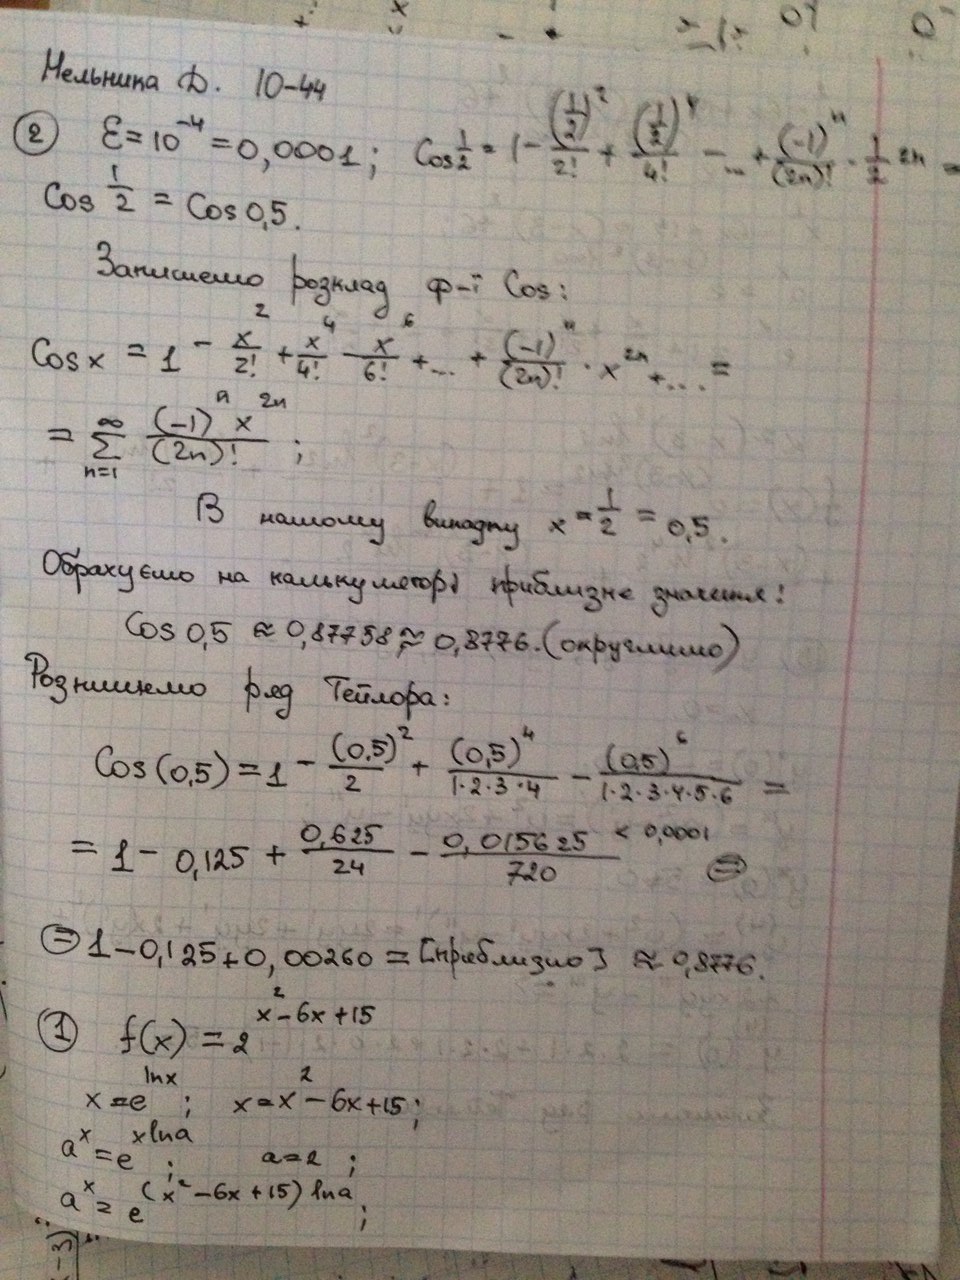 Мельника D. 10-44
② ε=10⁻⁴=0,0001; Cos 1/2 = 1 - (1/2)²/2! + (1/2)⁴/4! - ... + (-1)ⁿ/(2n)! · 1/2 ²ⁿ =
Cos 1/2 = Cos 0,5.
Запишемо розклад ф-ї Cos:
Cos x = 1 - x²/2! + x⁴/4! - x⁶/6! + ... + (-1)ⁿ/(2n)! · x²ⁿ + ... =
= ∑ n=1 ∞ (-1)ⁿ x²ⁿ/(2n)! ;
В нашому випадку x = 1/2 = 0,5.
Обрахуємо на калькуляторі приблизне значення:
Cos 0,5 ≈ 0,87758 ≈ 0,8776. (округлимо)
Розпишемо ряд Тейлора:
Cos (0,5) = 1 - (0,5)²/2 + (0,5)⁴/1·2·3·4 - (0,5)⁶/1·2·3·4·5·6 =
= 1 - 0,125 + 0,625/24 - 0,015625/720 < 0,0001 =
= 1 - 0,125 + 0,00260 = [приблизно] ≈ 0,8776.
① f(x) = 2^(x²-6x+15)
x = e^(ln x) ; x = x² - 6x + 15 ;
aˣ = e^(x ln a) ; a = 2 ;
aˣ = e^((x² - 6x + 15) ln a) ;